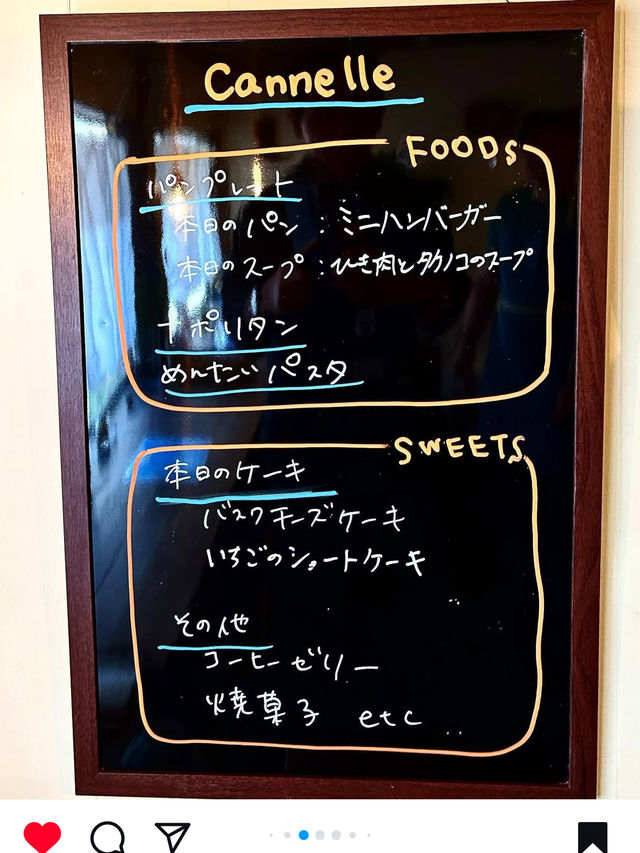 Cannelle
FOODS
パンプレート
本日のパン：ミニハンバーガー
本日のスープ：ひき肉とタケノコのスープ
ナポリタン
めんたいパスタ
SWEETS
本日のケーキ
バスクチーズケーキ
いちごのショートケーキ
その他
コーヒーゼリー
焼菓子 etc